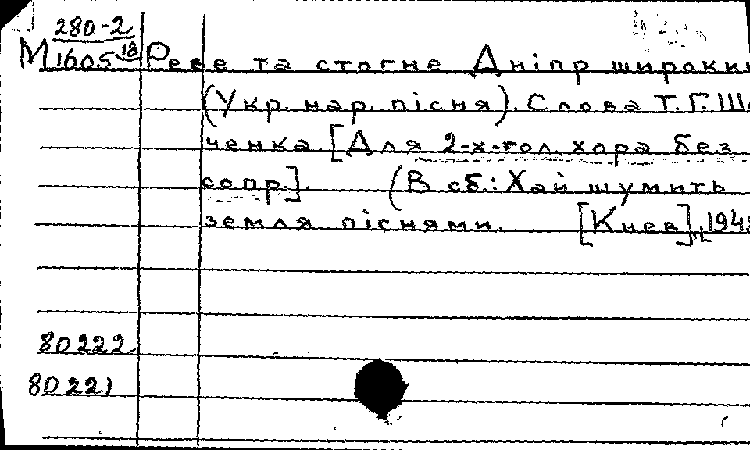 280-2
М 1605 18 Реве та стогне Дніпр широкий
(Укр. нар. пісня). Слова Т. Г. Ше
ченка. [Для 2-х-гол. хора без
сопр.]. (В сб.: Хай шумить
земля піснями. [Киев], 194
80222
80221